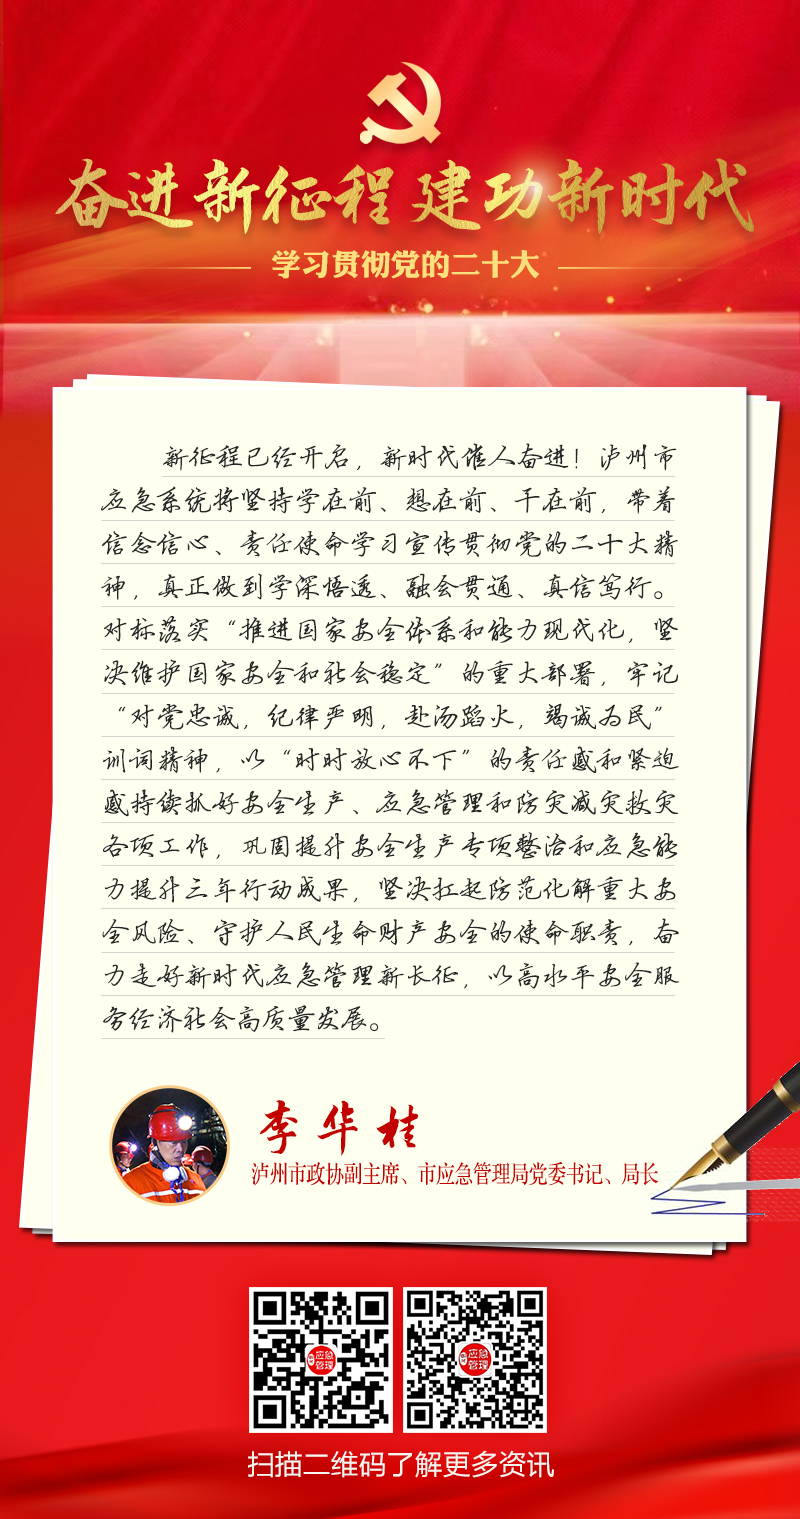 奋进新征程 建功新时代
学习贯彻党的二十大
新征程已经开启，新时代催人奋进！泸州市
应急系统将坚持学在前、想在前、干在前，带着
信念信心、责任使命学习宣传贯彻党的二十大精
神，真正做到学深悟透、融会贯通、真信笃行。
对标落实“推进国家安全体系和能力现代化，坚
决维护国家安全和社会稳定”的重大部署，牢记
“对党忠诚，纪律严明，赴汤蹈火，竭诚为民”
训词精神，以“时时放心不下”的责任感和紧迫
感持续抓好安全生产、应急管理和防灾减灾救灾
各项工作，巩固提升安全生产专项整治和应急能
力提升三年行动成果，坚决扛起防范化解重大安
全风险、守护人民生命财产安全的使命职责，奋
力走好新时代应急管理新长征，以高水平安全服
务经济社会高质量发展。
李华桂
泸州市政协副主席、市应急管理局党委书记、局长
应急
管理
应急
管理
扫描二维码了解更多资讯